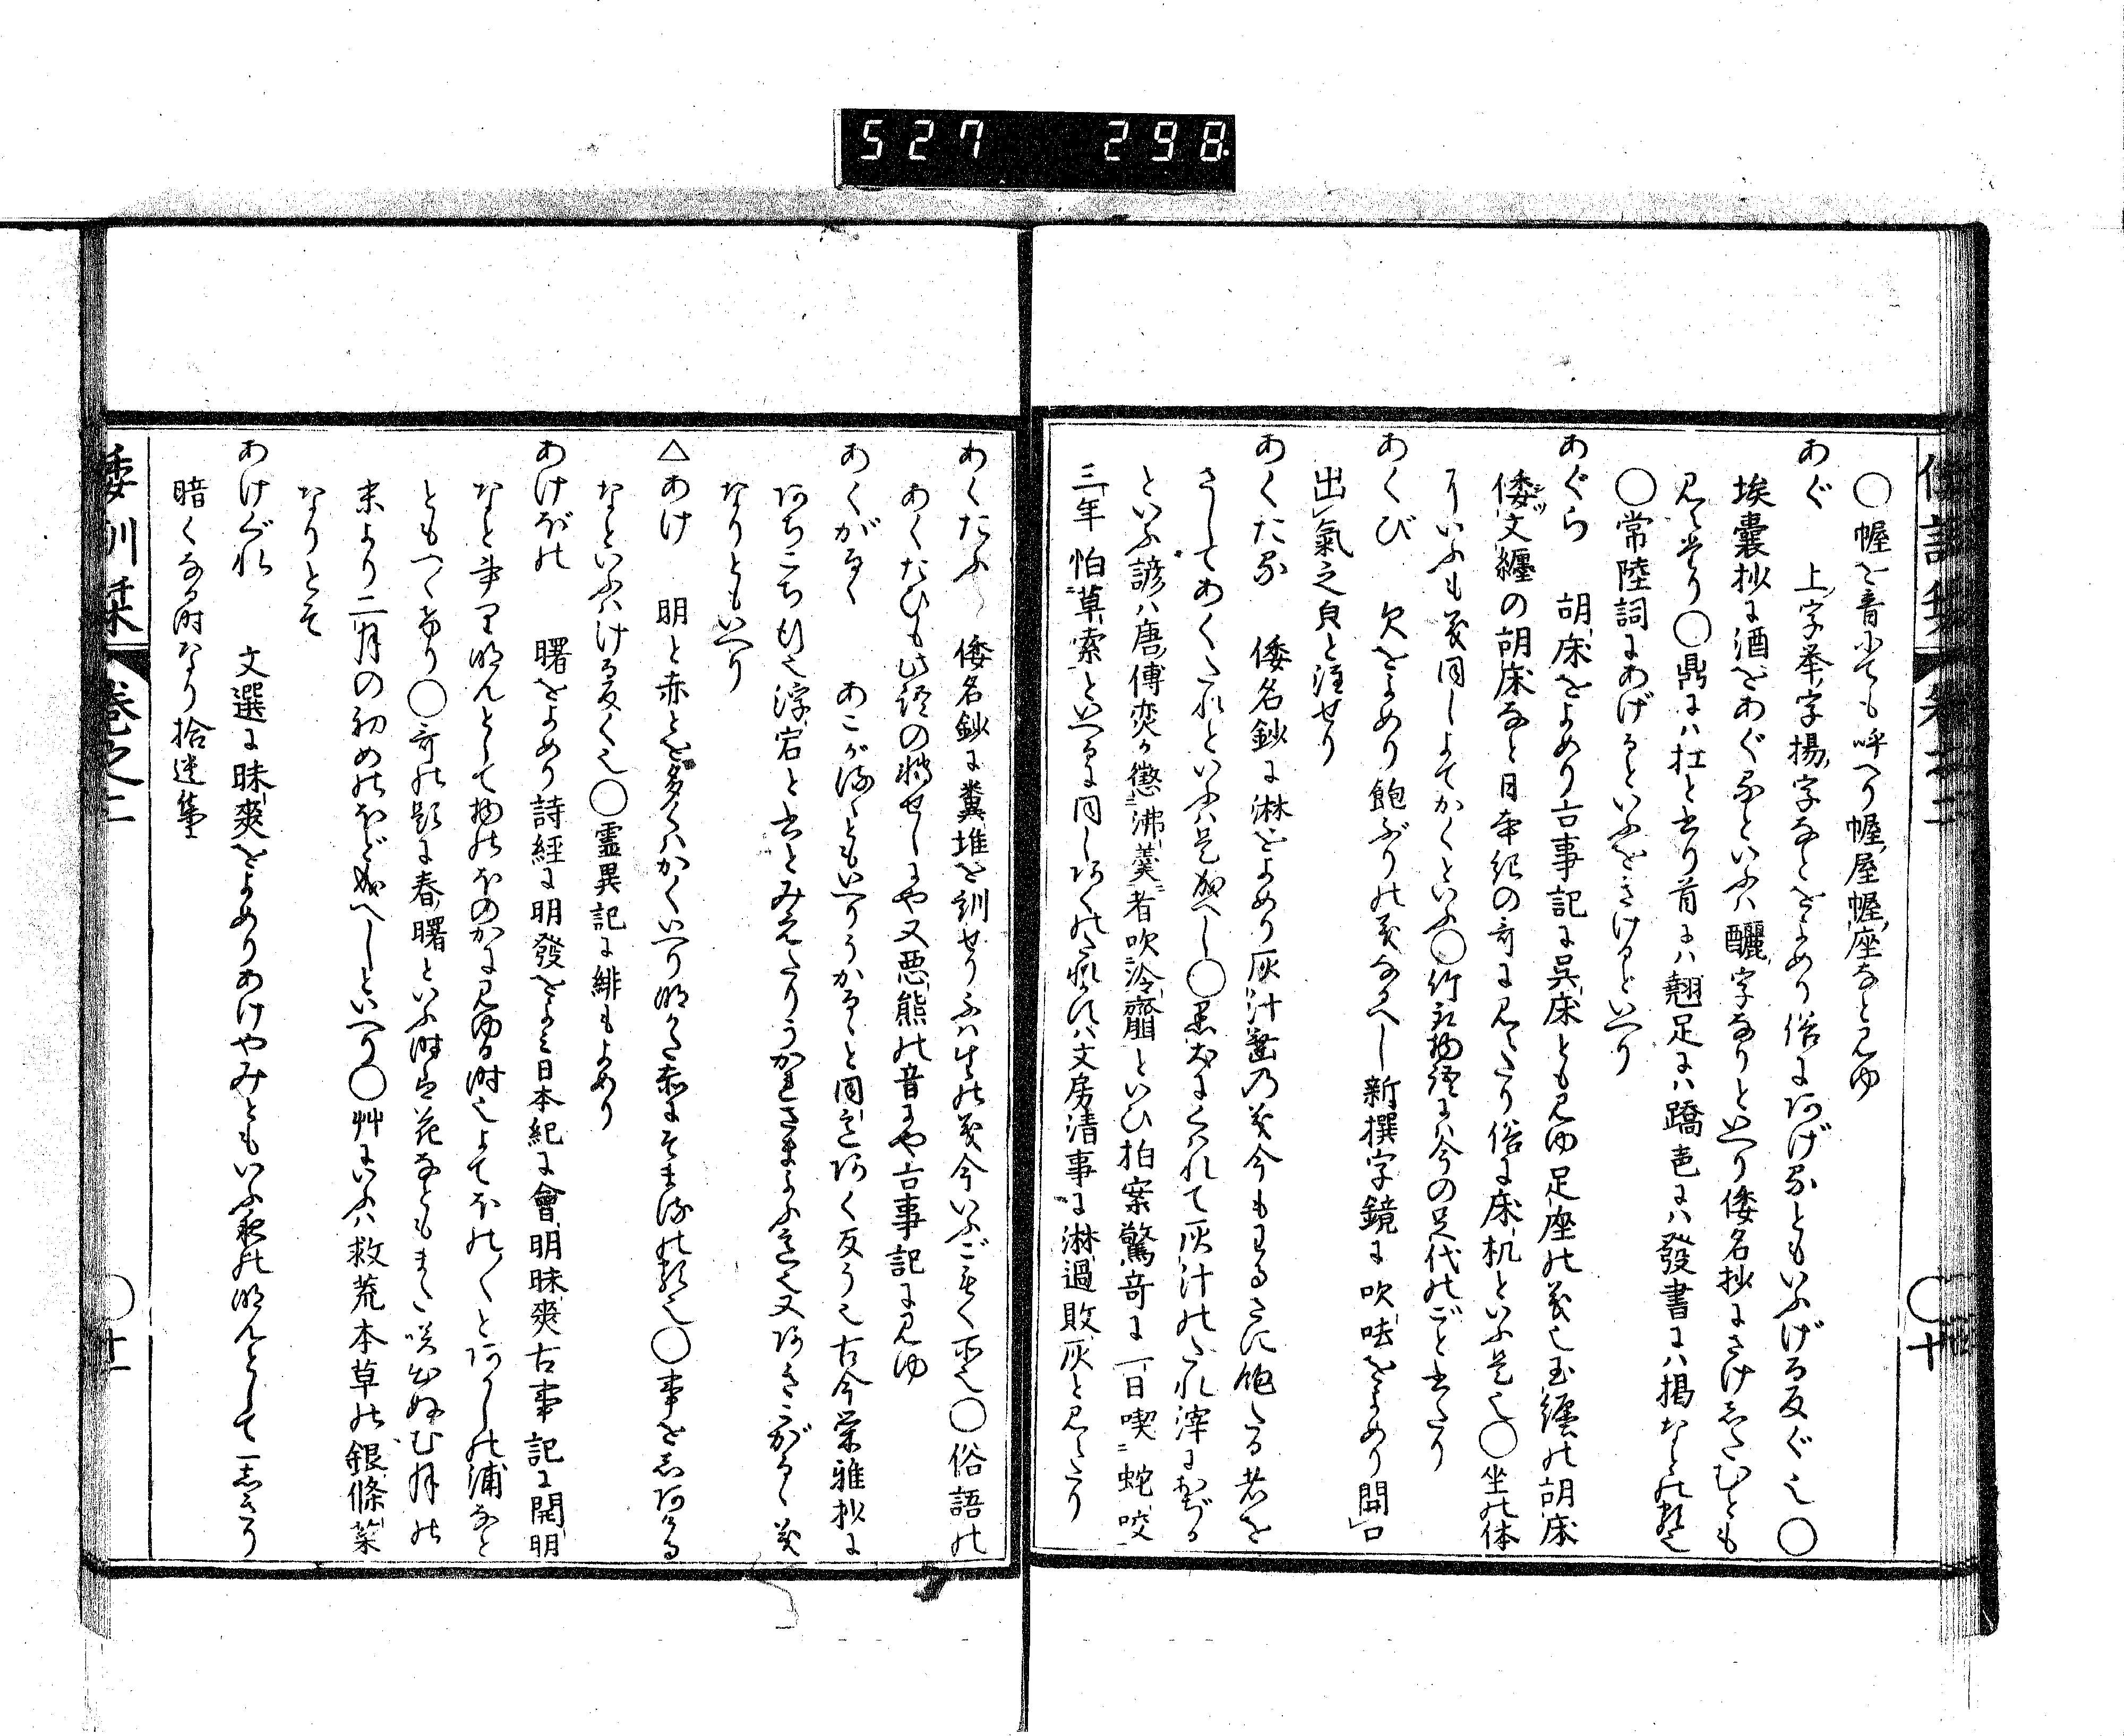 527 298
○幄を音にても呼へり幄屋幄座なと見ゆ
あぐ 上字挙字揚字なとをよめり俗にあげるともいふげる反ぐ也○
埃囊抄に酒をあぐるといふハ釃字なりといへり倭名抄にさけしたむとも
見えたり○鼎にハ扛と書り首にハ翹足にハ蹻色にハ發書にハ掲なとの類也
○常陸詞にあげるといふをさけるといへり
あぐら 胡床をよめり古事記に呉床とも見ゆ足座の義也玉纏の胡床
倭文纏の胡床なと日本紀の哥に見えたり俗に床机といふ是也○坐の体
をいふも義同しよてかくといふ○竹取物語にハ今の足代のごと書たり
あくび 欠をよめり飽ぶりの義なるへし新撰字鏡に吹呿をよめり開口
出氣之皃と注せり
あくたる 倭名鈔に淋をよめり灰汁垂の義今もわるさに飽たる者を
さしてあくたれといふハ是成へし○黒犬にくはれて灰汁のたれ滓におぢる
といふ諺ハ唐傅奕か懲沸羹者吹冷虀といひ拍案驚奇に一日喫蛇咬
三年怕草索といへるに同しあくのたれかすハ文房清事に淋過敗灰と見えたり
倭訓栞 卷之二 ○十
あくたふ 倭名鈔に糞堆を訓せりふハ生の義今いふごもく所也○俗語の
あくたひも此語の轉せしにや又悪態の音にや古事記に見ゆ
あくがるゝ あこがるゝともいへりうかるゝと同意あく反う也古今栄雅抄に
あちこち行也浮宕と書とみえたりうかれさまよふ意也又あきこがるゝ義
なりともいへり
△あけ 明と赤とを多くハかくいへり明た赤にそまるの類也○事をしあくる
なといふハける反く也○霊異記に緋もよめり
あけぼの 曙をよめり詩經に明發をよみ日本紀に會明昧爽古事記に開明
なと書り明んとして物のほのかに見ゆる時也よてほの〳〵とあかしの浦なと
ともつゝけり○哥の題に春曙といふ時ハ花なともまた咲出ぬむ月の
末より二月の初めのほど成へしといへり○艸にいふハ救荒本草の銀條菜
なりとそ
あけぐれ 文選に昧爽をよめりあけやみともいふ夜の明んとして一しきり
暗くなる時なり拾遺集
倭訓栞 卷之二 ○十一